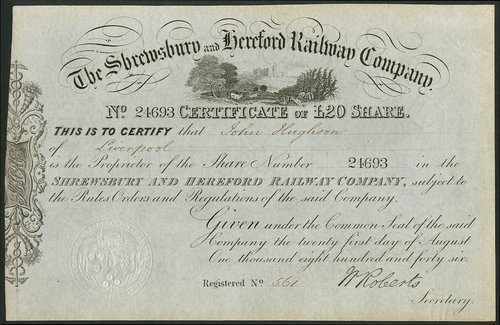 The Shrewsbury and Hereford Railway Company.
No. 24693 CERTIFICATE OF £20 SHARE.
THIS IS TO CERTIFY that John Hughson
of Liverpool
is the Proprietor of the Share Number 24693 in the
SHREWSBURY AND HEREFORD RAILWAY COMPANY, subject to
the Rules Orders and Regulations of the said Company.
Given under the Common Seal of the said
Company the twenty first day of August
One thousand eight hundred and forty six.
Registered No. 561
W Roberts
Secretary.